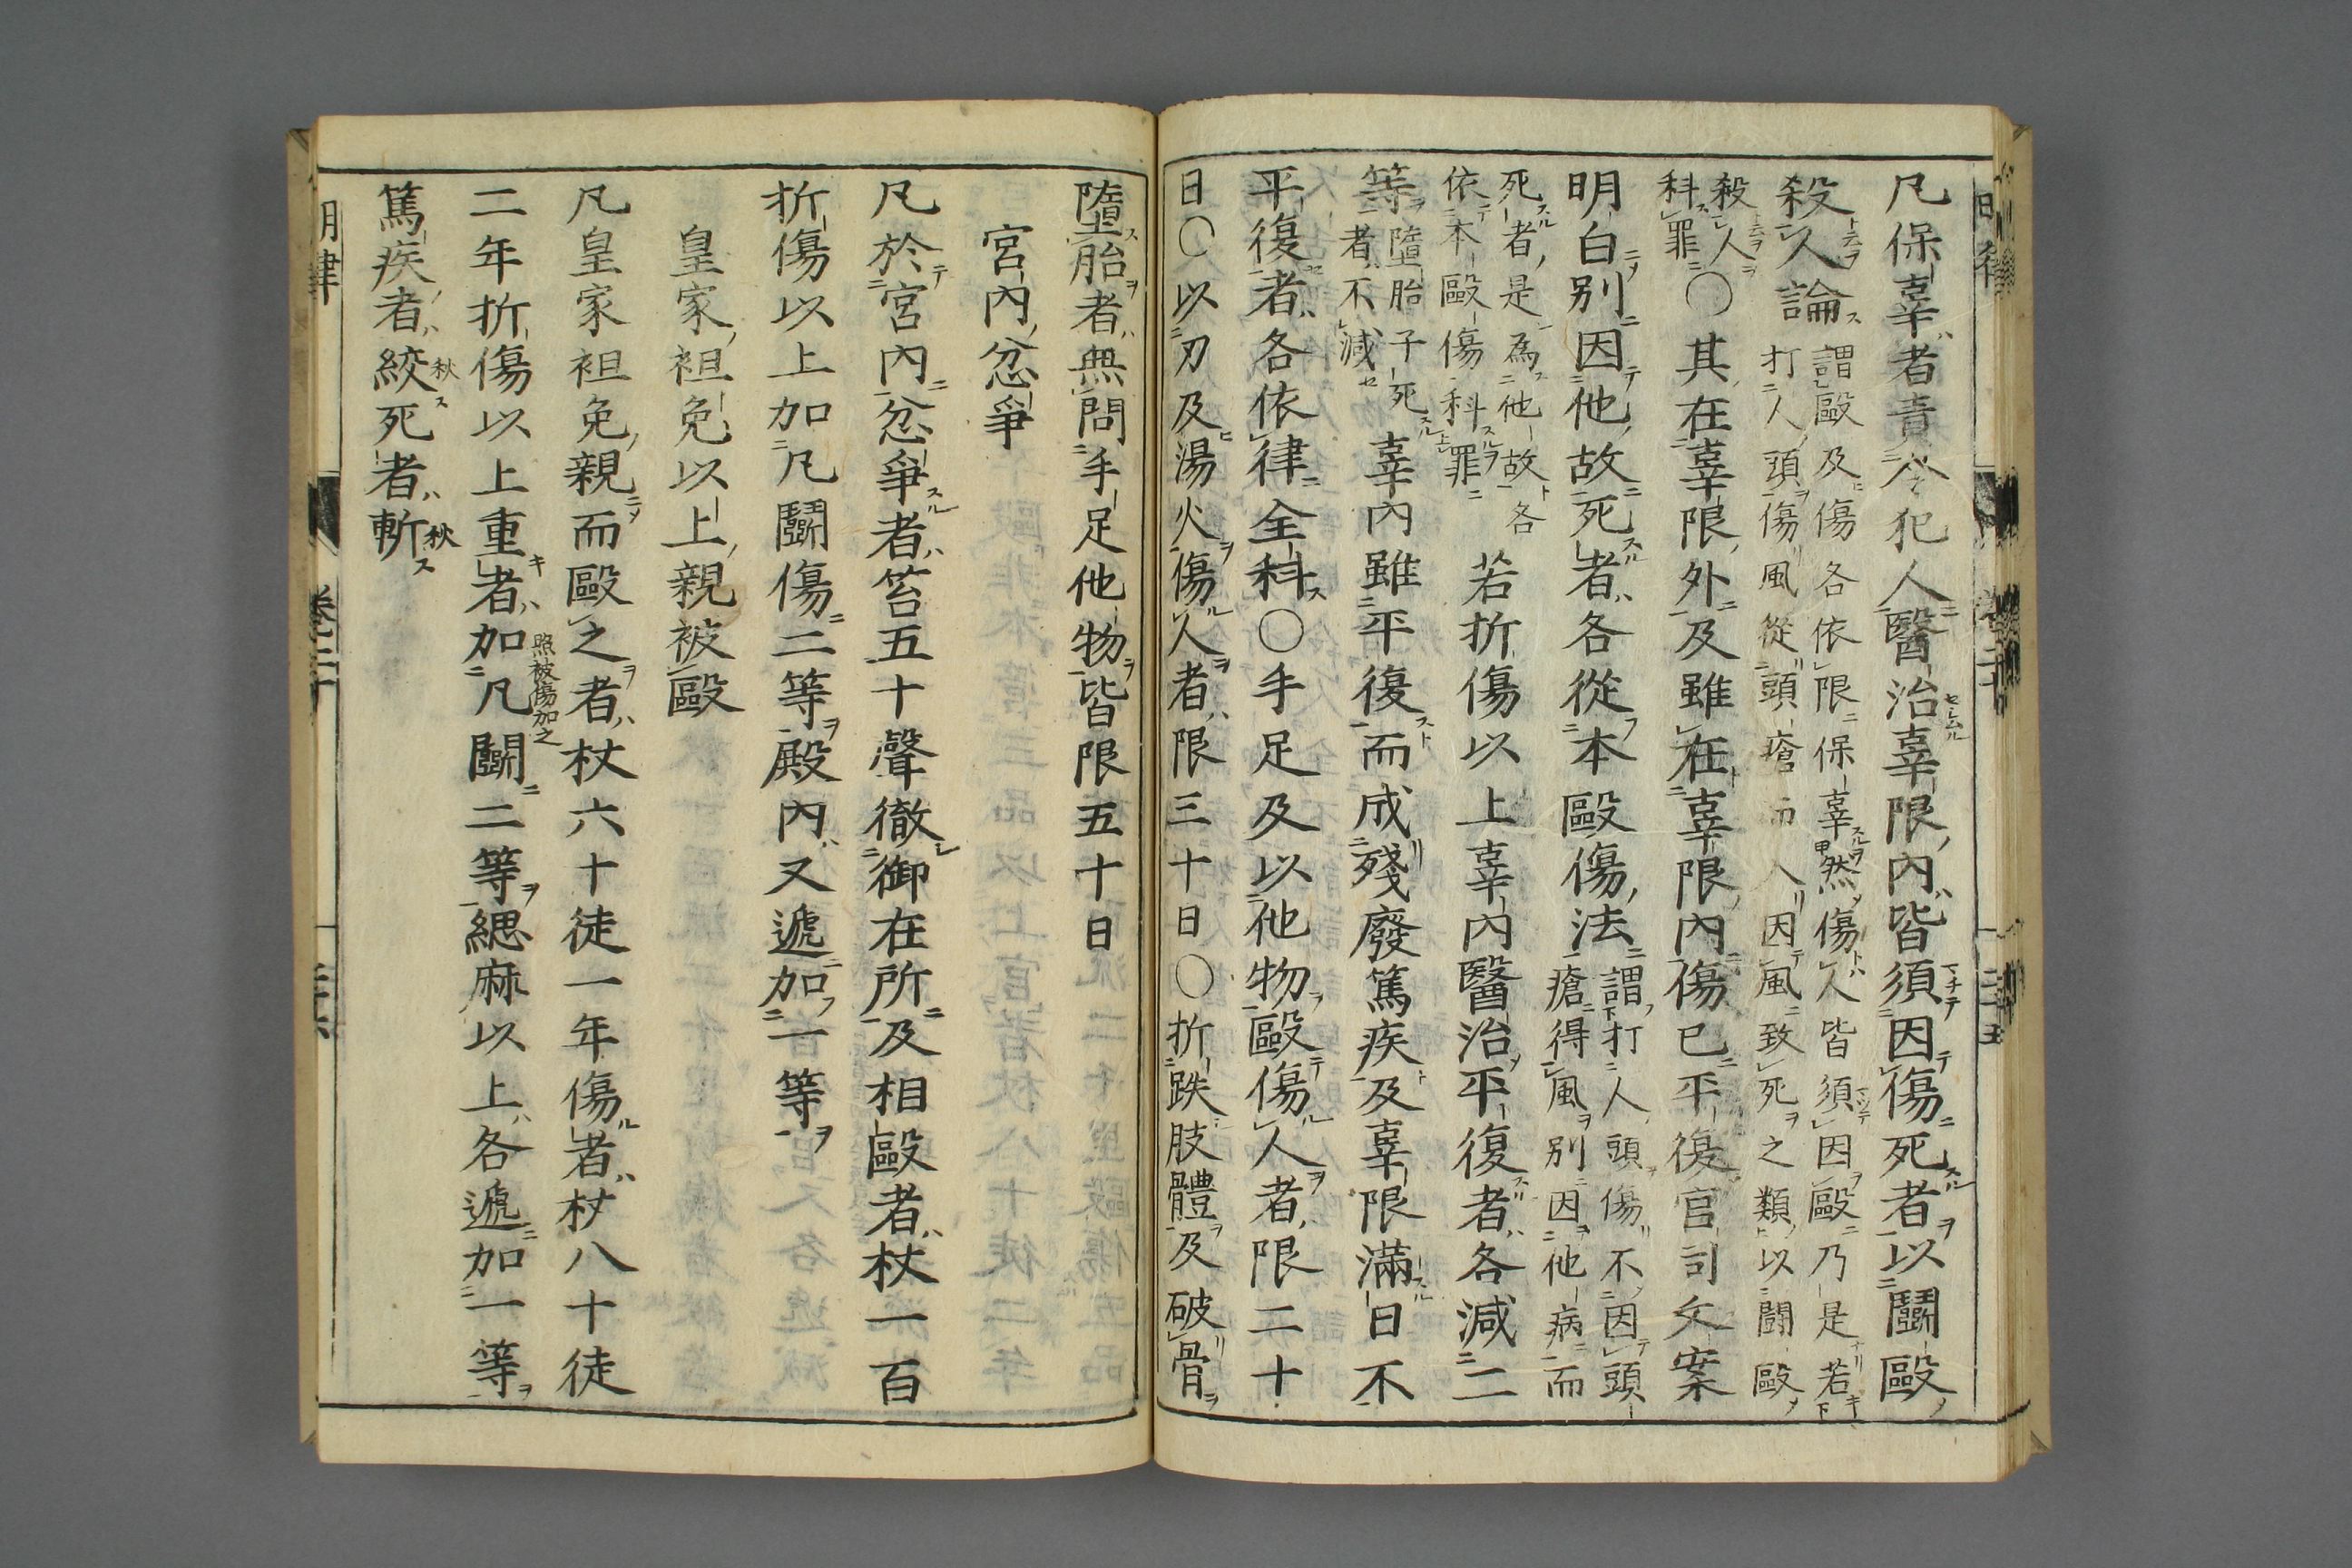 凡保辜者責令犯人醫治辜限內皆須因傷死者以鬪毆
殺人論謂毆及傷各依限保辜然傷人皆須因毆乃是若
打人頭傷風從頭瘡而入因風致死之類以鬪毆
殺人
科罪〇其在辜限外及雖在辜限內傷已平復官司文案
明白別因他故死者各從本毆傷法謂打人頭傷不因頭
瘡得風別因他病而
死者是爲他故各
依本毆傷科罪若折傷以上辜內醫治平復者各減二
等墮胎子死
者不減辜內雖平復而成殘廢篤疾及辜限滿日不
平復者各依律全科〇手足及以他物毆傷人者限二十
日〇以刃及湯火傷人者限三十日〇折跌肢體及破骨
墮胎者無問手足他物皆限五十日
宮內忿爭
凡於宮內忿爭者笞五十聲徹御在所及相毆者杖一百
折傷以上加凡鬪傷二等殿內又遞加一等
皇家袒免以上親被毆
凡皇家袒免親而毆之者杖六十徒一年傷者杖八十徒
二年折傷以上重者加凡鬪二等緦麻以上各遞加一等
照被傷加之
篤疾者絞死者斬
秋
秋
明律
卷二十
二十六